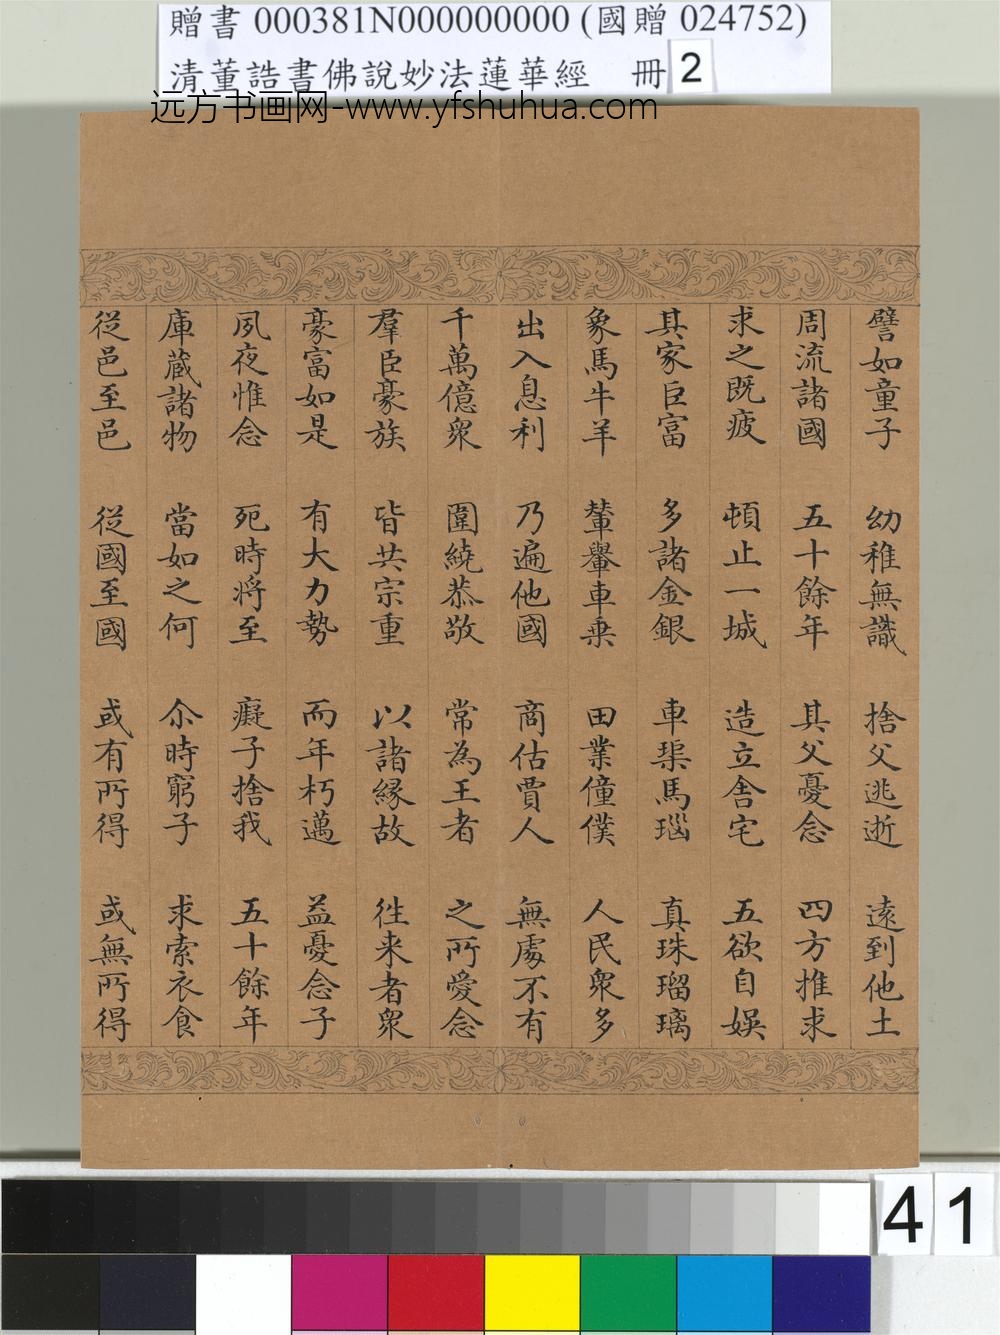 贈書 000381N000000000 (國贈 024752)
清董誥書佛說妙法蓮華經 冊 2
远方书画网-www.yfshuhua.com
譬如童子 幼稚無識 捨父逃逝 遠到他土
周流諸國 五十餘年 其父憂念 四方推求
求之既疲 頓止一城 造立舍宅 五欲自娛
其家巨富 多諸金銀 車渠馬瑙 真珠瑠璃
象馬牛羊 輦轝車乗 田業僮僕 人民衆多
出入息利 乃遍他國 商估賈人 無處不有
千萬億衆 圍繞恭敬 常為王者 之所愛念
羣臣豪族 皆共宗重 以諸緣故 徃来者衆
豪富如是 有大力勢 而年朽邁 益憂念子
夙夜惟念 死時将至 癡子捨我 五十餘年
庫藏諸物 當如之何 尒時窮子 求索衣食
從邑至邑 從國至國 或有所得 或無所得
41